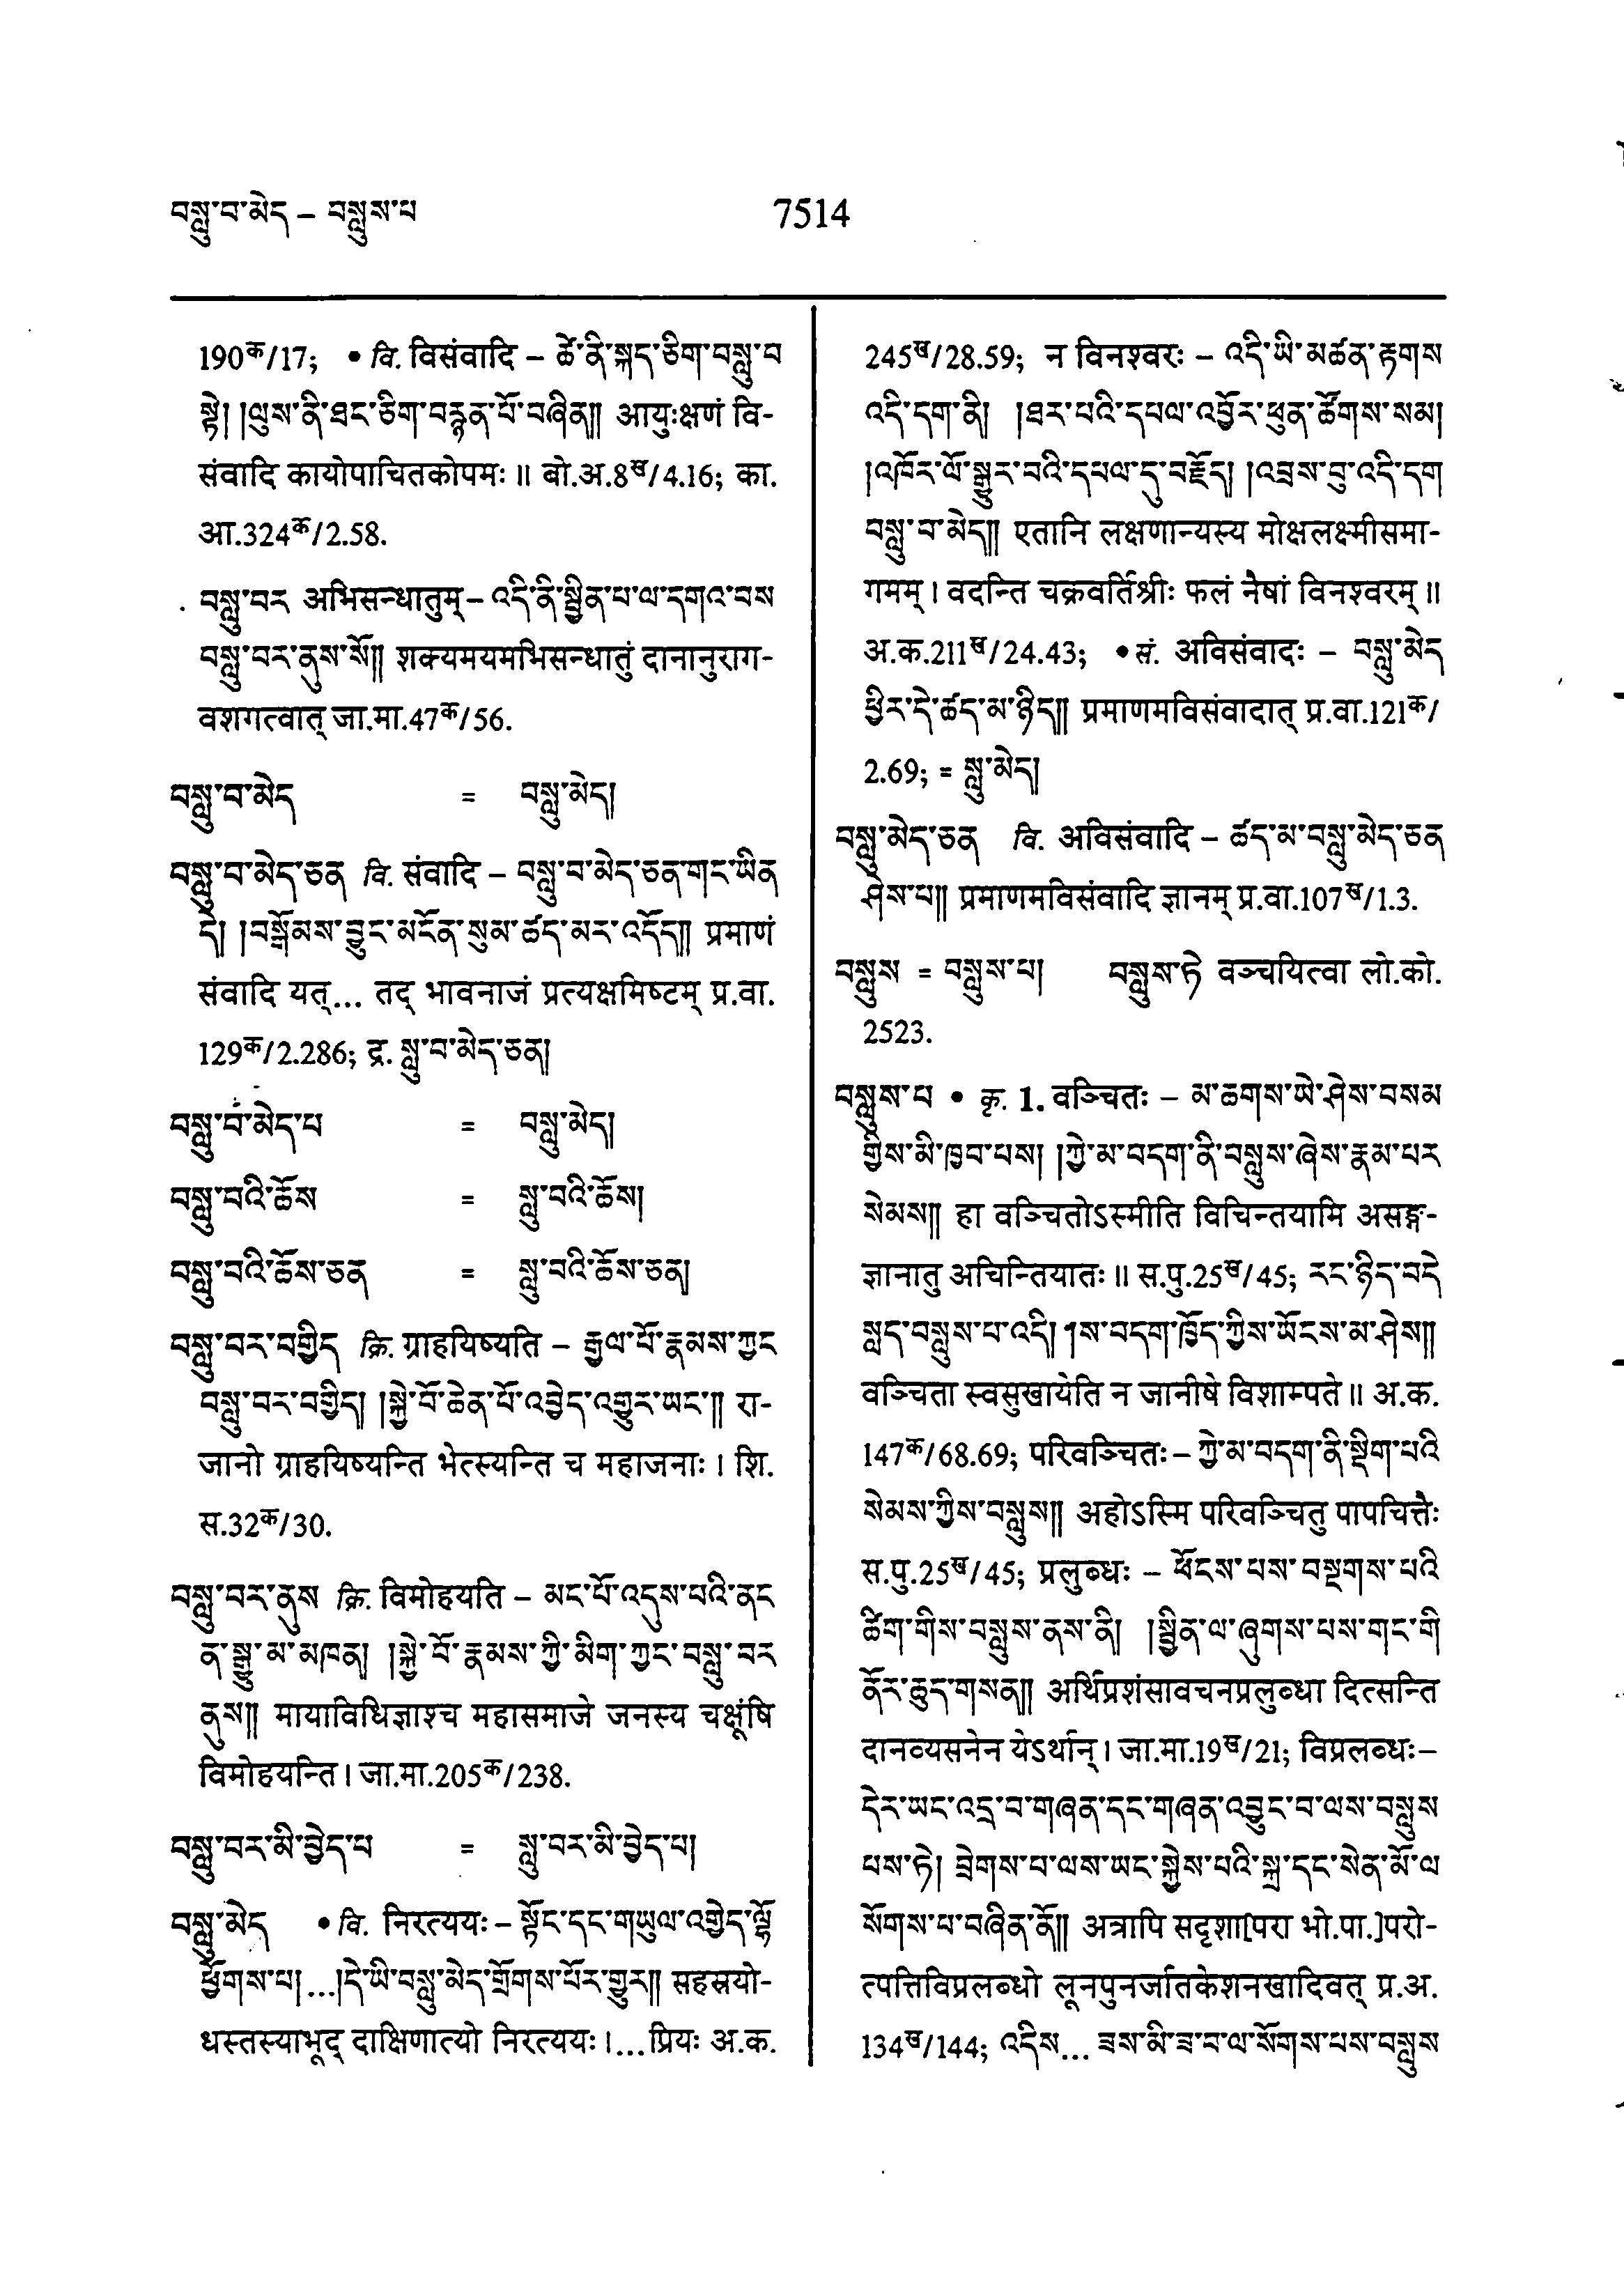 བསླུ་བ་མེད – བསླུས་པ
7514
190क/17; • वि. विसंवादि – ཚེ་ནི་སྐད་ཅིག་བསླུ་བ
སྟེ། །ལུས་ནི་ཐང་ཅིག་བརྙན་པོ་བཞིན།། आयुःक्षणं वि-
संवादि कायोपाचितकोपमः ॥ बो.अ.8ख/4.16; का.
आ.324क/2.58.
བསླུ་བར अभिसन्धातुम् – འདི་ནི་སྦྱིན་པ་ལ་དགའ་བས
བསླུ་བར་ནུས་སོ།། शक्यमयमभिसन्धातुं दानानुराग-
वशगत्वात् जा.मा.47क/56.
བསླུ་བ་མེད = བསླུ་མེད།
བསླུ་བ་མེད་ཅན वि. संवादि – བསླུ་བ་མེད་ཅན་གང་ཡིན
དེ། །བསྒོམས་བྱུང་མངོན་སུམ་ཚད་མར་འདོད།། प्रमाणं
संवादि यत्... तद् भावनाजं प्रत्यक्षमिष्टम् प्र.वा.
129क/2.286; द्र. སླུ་བ་མེད་ཅན།
བསླུ་བ་མེད་པ = བསླུ་མེད།
བསླུ་བའི་ཆོས = སླུ་བའི་ཆོས།
བསླུ་བའི་ཆོས་ཅན = སླུ་བའི་ཆོས་ཅན།
བསླུ་བར་བགྱིད क्रि. ग्राहयिष्यति – རྒྱལ་པོ་རྣམས་ཀྱང
བསླུ་བར་བགྱིད། །སྐྱེ་བོ་ཆེན་པོ་འབྱེད་འགྱུར་ཡང་།། रा-
जानो ग्राहयिष्यन्ति भेत्स्यन्ति च महाजनाः । शि.
स.32क/30.
བསླུ་བར་ནུས क्रि. विमोहयति – མང་པོ་འདུས་པའི་ནང
ན་སྒྱུ་མ་མཁན། །སྐྱེ་བོ་རྣམས་ཀྱི་མིག་ཀྱང་བསླུ་བར
ནུས།། मायाविधिज्ञाश्च महासमाजे जनस्य चक्षूंषि
विमोहयन्ति । जा.मा.205क/238.
བསླུ་བར་མི་བྱེད་པ = སླུ་བར་མི་བྱེད་པ།
བསླུ་མེད • वि. निरत्ययः – སྟོང་དང་གཡུལ་འགྱེད་ལྷོ
ཕྱོགས་པ། ...།དེ་ཡི་བསླུ་མེད་གྲོགས་པོར་གྱུར།། सहस्रयो-
धस्तस्याभूद् दाक्षिणात्यो निरत्ययः ।... प्रियः अ.क.
245ख/28.59; न विनश्वरः – འདི་ཡི་མཚན་རྟགས
འདི་དག་ནི། །ཐར་པའི་དཔལ་འབྱོར་ཕུན་ཚོགས་སམ།
།འཁོར་ལོ་སྒྱུར་བའི་དཔལ་དུ་བརྗོད། །འབྲས་བུ་འདི་དག
བསླུ་བ་མེད།། एतानि लक्षणान्यस्य मोक्षलक्ष्मीसमा-
गमम् । वदन्ति चक्रवर्तिश्रीः फलं नैषां विनश्वरम् ॥
अ.क.211ख/24.43; • सं. अविसंवादः – བསླུ་མེད
ཕྱིར་དེ་ཚད་མ་ཉིད།། प्रमाणमविसंवादात् प्र.वा.121क/
2.69; = སླུ་མེད།
བསླུ་མེད་ཅན वि. अविसंवादि – ཚད་མ་བསླུ་མེད་ཅན
ཤེས་པ།། प्रमाणमविसंवादि ज्ञानम् प्र.वा.107ख/1.3.
བསླུས = བསླུས་པ། བསླུས་ཏེ वञ्चयित्वा लो.को.
2523.
བསླུས་པ • कृ. 1. वञ्चितः – མ་ཆགས་ཡེ་ཤེས་བསམ
གྱིས་མི་ཁྱབ་པས། །ཀྱེ་མ་བདག་ནི་བསླུས་ཞེས་རྣམ་པར
སེམས།། हा वञ्चितोऽस्मीति विचिन्तयामि असङ्ग-
ज्ञानातु अचिन्तियातः ॥ स.पु.25ख/45; རང་ཉིད་བདེ
སླད་བསླུས་པ་འདི། །ས་བདག་ཁྱོད་ཀྱིས་ཡོངས་མ་ཤེས།།
वञ्चिता स्वसुखायेति न जानीषे विशाम्पते ॥ अ.क.
147क/68.69; परिवञ्चितः – ཀྱེ་མ་བདག་ནི་སྡིག་པའི
སེམས་ཀྱིས་བསླུས།། अहोऽस्मि परिवञ्चितु पापचित्तैः
स.पु.25ख/45; प्रलुब्धः – ཕོངས་པས་བསྔགས་པའི
ཚིག་གིས་བསླུས་ནས་ནི། །སྦྱིན་ལ་ཞུགས་པས་གང་གི
ནོར་ཆུད་གསན།། अर्थिप्रशंसावचनप्रलुब्धा दित्सन्ति
दानव्यसनेन येऽर्थान् । जा.मा.19ख/21; विप्रलब्धः –
དེར་ཡང་འདྲ་བ་གཞན་དང་གཞན་འབྱུང་བ་ལས་བསླུས
པས་ཏེ། བྲེགས་བ་ལས་ཡང་སྐྱེས་པའི་སྐྲ་དང་སེན་མོ་ལ
སོགས་པ་བཞིན་ནོ།། अत्रापि सदृशा[परा भो.पा.]परो-
त्पत्तिविप्रलब्धो लूनपुनर्जातकेशनखादिवत् प्र.अ.
134ख/144; འདིས... ཟས་མི་ཟ་བ་ལ་སོགས་པས་བསླུས